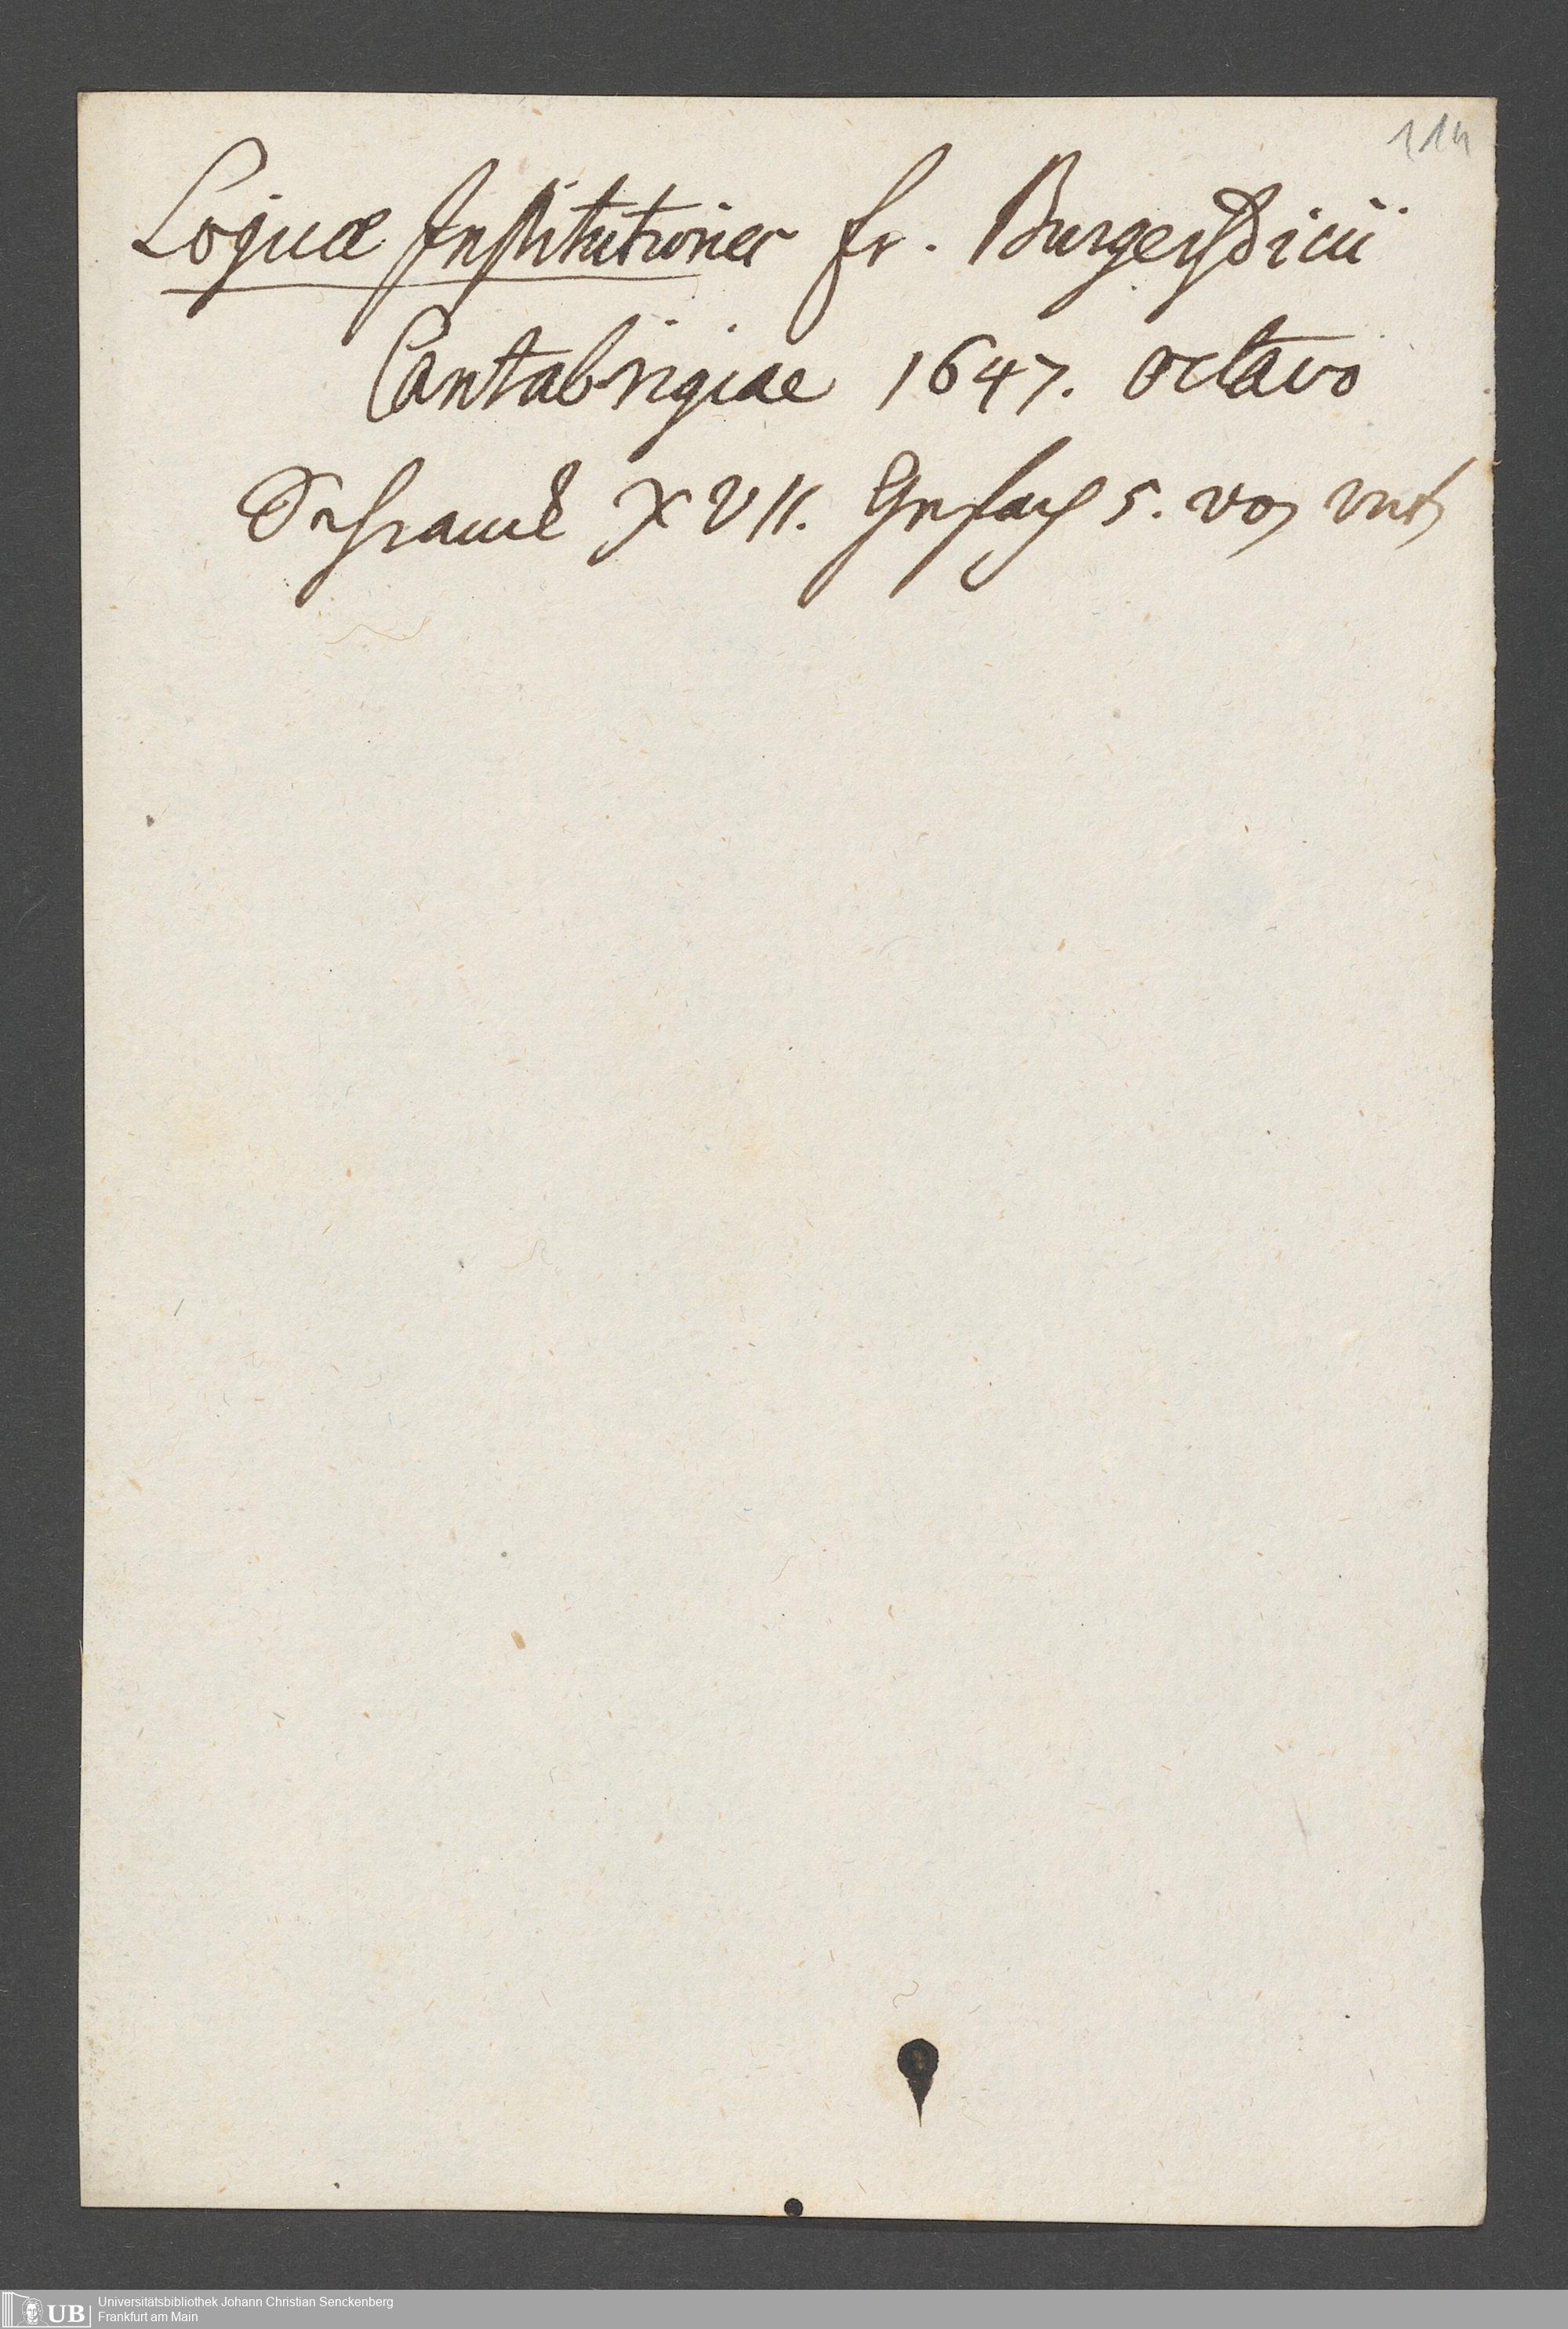 114
Logicæ Institutiones fr. Burgersdicii
Cantabrigiae 1647. octavo
Schranck XVII. Gefach 5. von unten
Universitätsbibliothek Johann Christian Senckenberg
Frankfurt am Main
UB